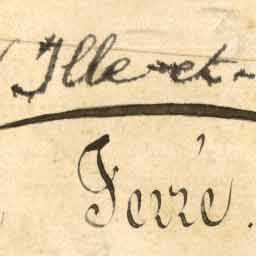 Ille-et-
Ferré.